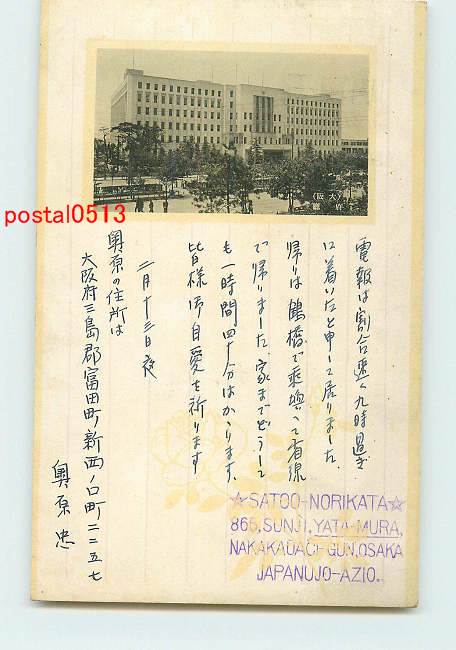 (大阪)
府廳
postal0513
電報は割合遅く九時過ぎ
に着いたと申して居りました
帰りは鶴橋で乗換へて省線
で帰りました、家までどうして
も一時間四十分はかゝります、
皆様御自愛を祈ります
二月十三日夜
奥原の住所は
大阪府三島郡富田町新西ノ口町二二五七
奥原忠
☆SATOO-NORIKATA☆
865,SUNJI,YATA-MURA,
NAKAKAUACI-GUN,OSAKA
JAPANUJO-AZIO.